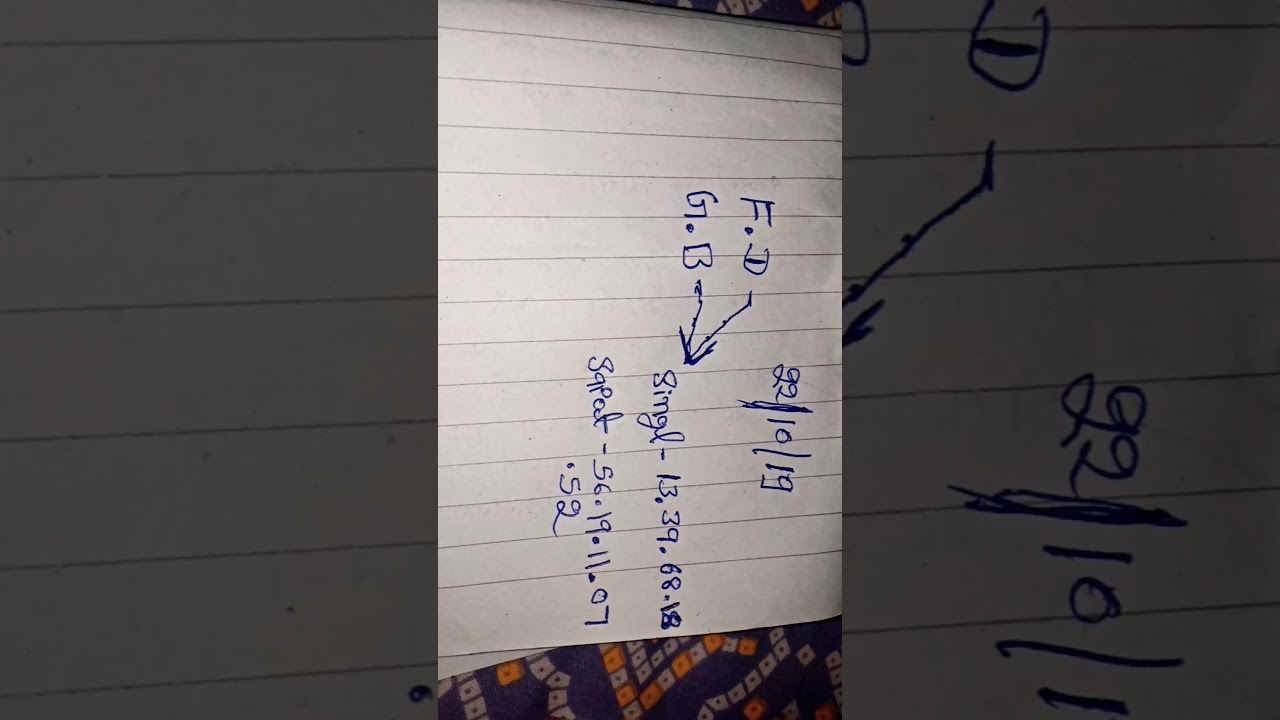 22/10/19
F.D
G.B
Singl - 13.39.68.18
Sapat - 56.19.11.07
.52